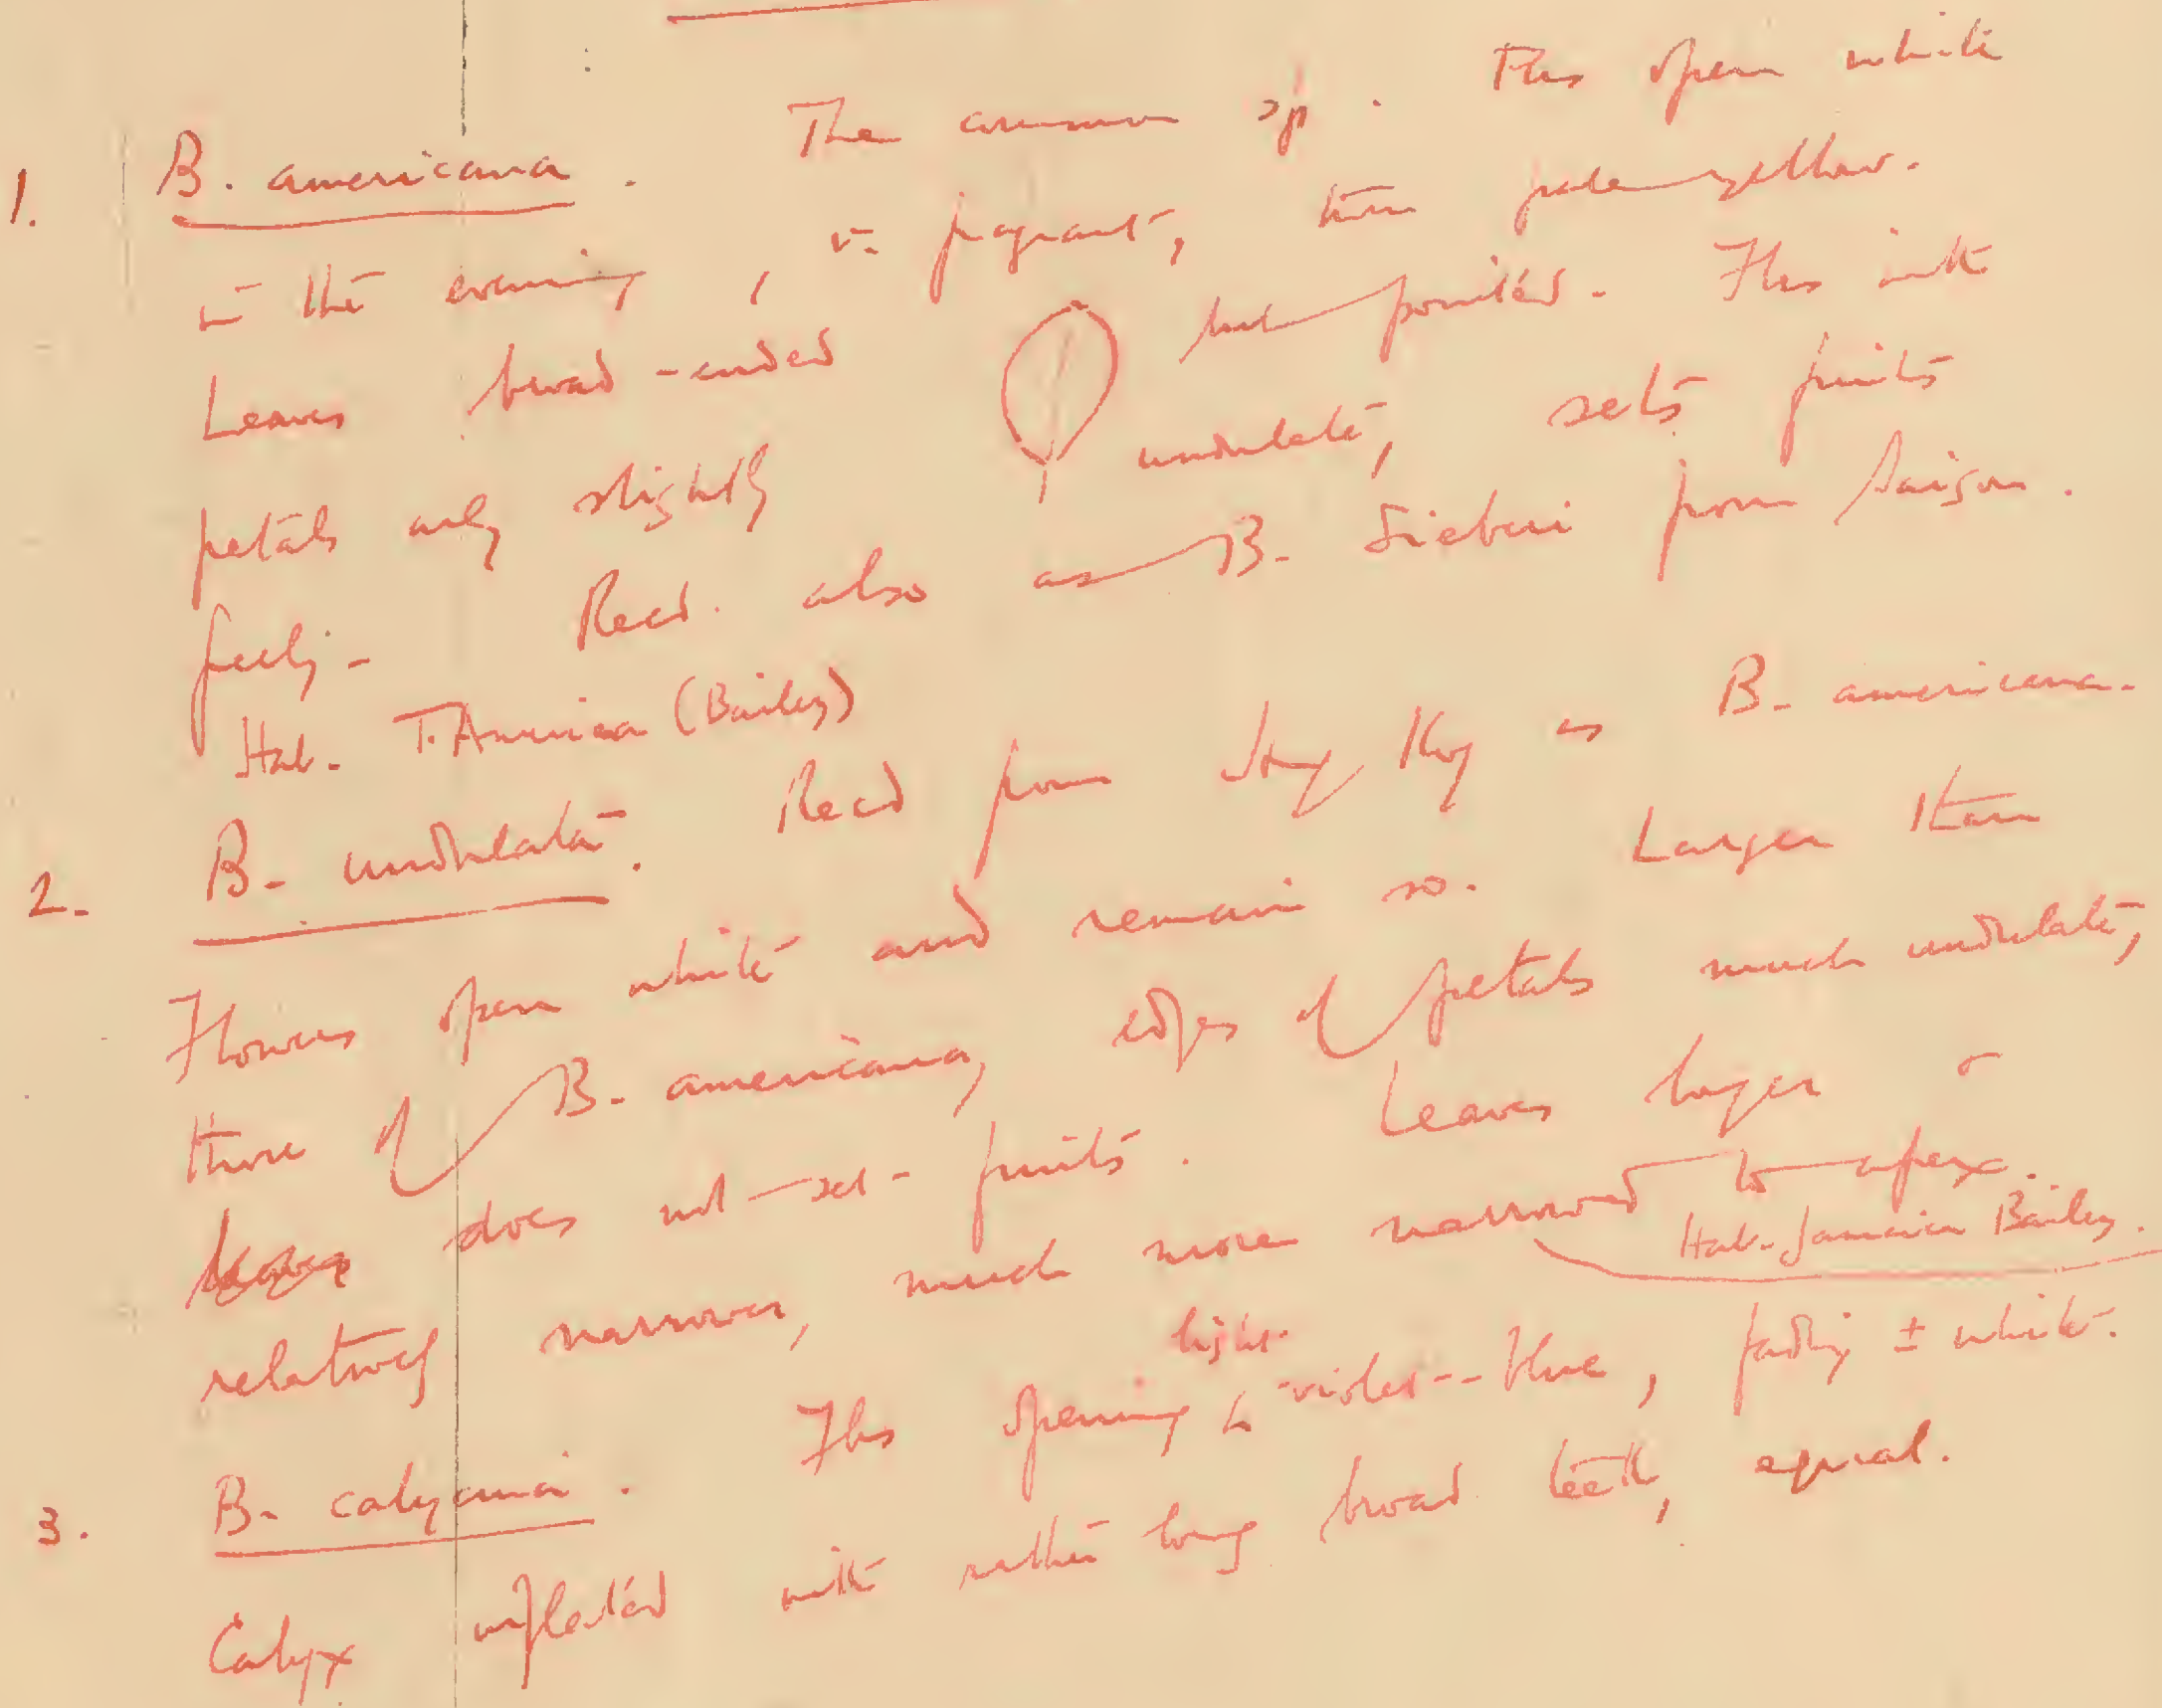 1. B. americana. The common sp. Fls open white
in the evening, v. fragrant, turn pale yellow.
Leaves broad-ended but pointed. Fls with
petals only slightly undulate, sets fruits
freely. Recd. also as B. Sieberi from Saigon.
Hab. T. America (Bailey)
2. B. undulata. Recd from Hong Kong as B. americana.
Flowers open white and remain so. Larger than
those of B. americana, edges of petals much undulate,
does not set fruits. Leaves longer &
relatively narrower, much more narrowed to apex.
Hab. Jamaica Bailey.
3. B. calycina. Fls opening light violet-blue, fading ± white.
Calyx inflated with rather long broad teeth, equal.